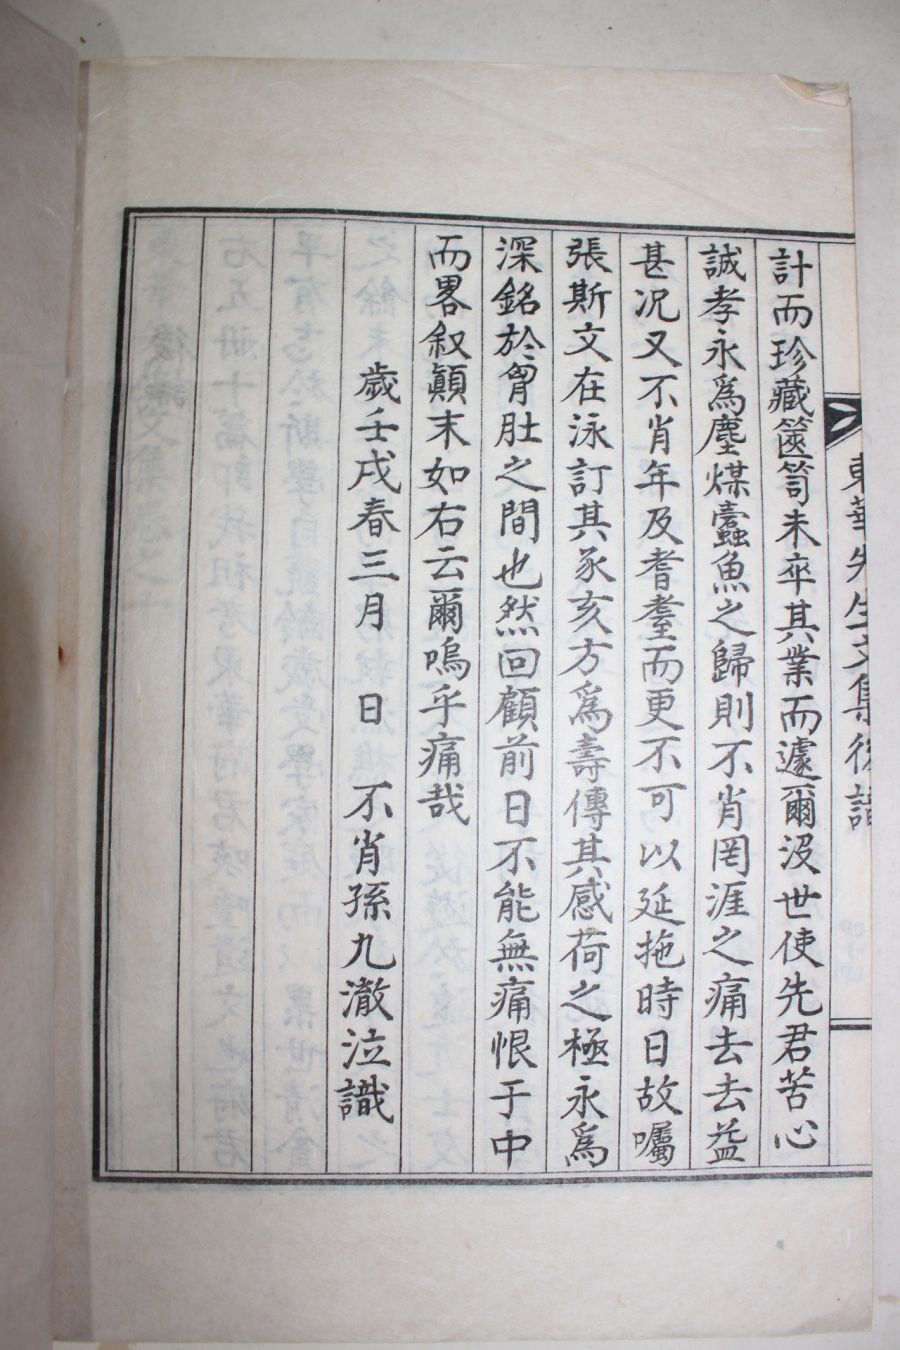 東華先生文集後識
計而珍藏篋笥未卒其業而遽爾沒世使先君苦心
誠孝永爲塵煤蠹魚之歸則不肖罔涯之痛去去益
甚况又不肖年及耆耋而更不可以延拖時日故囑
張斯文在泳訂其豕亥方爲壽傳其感荷之極永爲
深銘於胷肚之間也然回顧前日不能無痛恨于中
而畧叙顚末如右云爾嗚乎痛哉
歲壬戌春三月 日 不肖孫九澈泣識